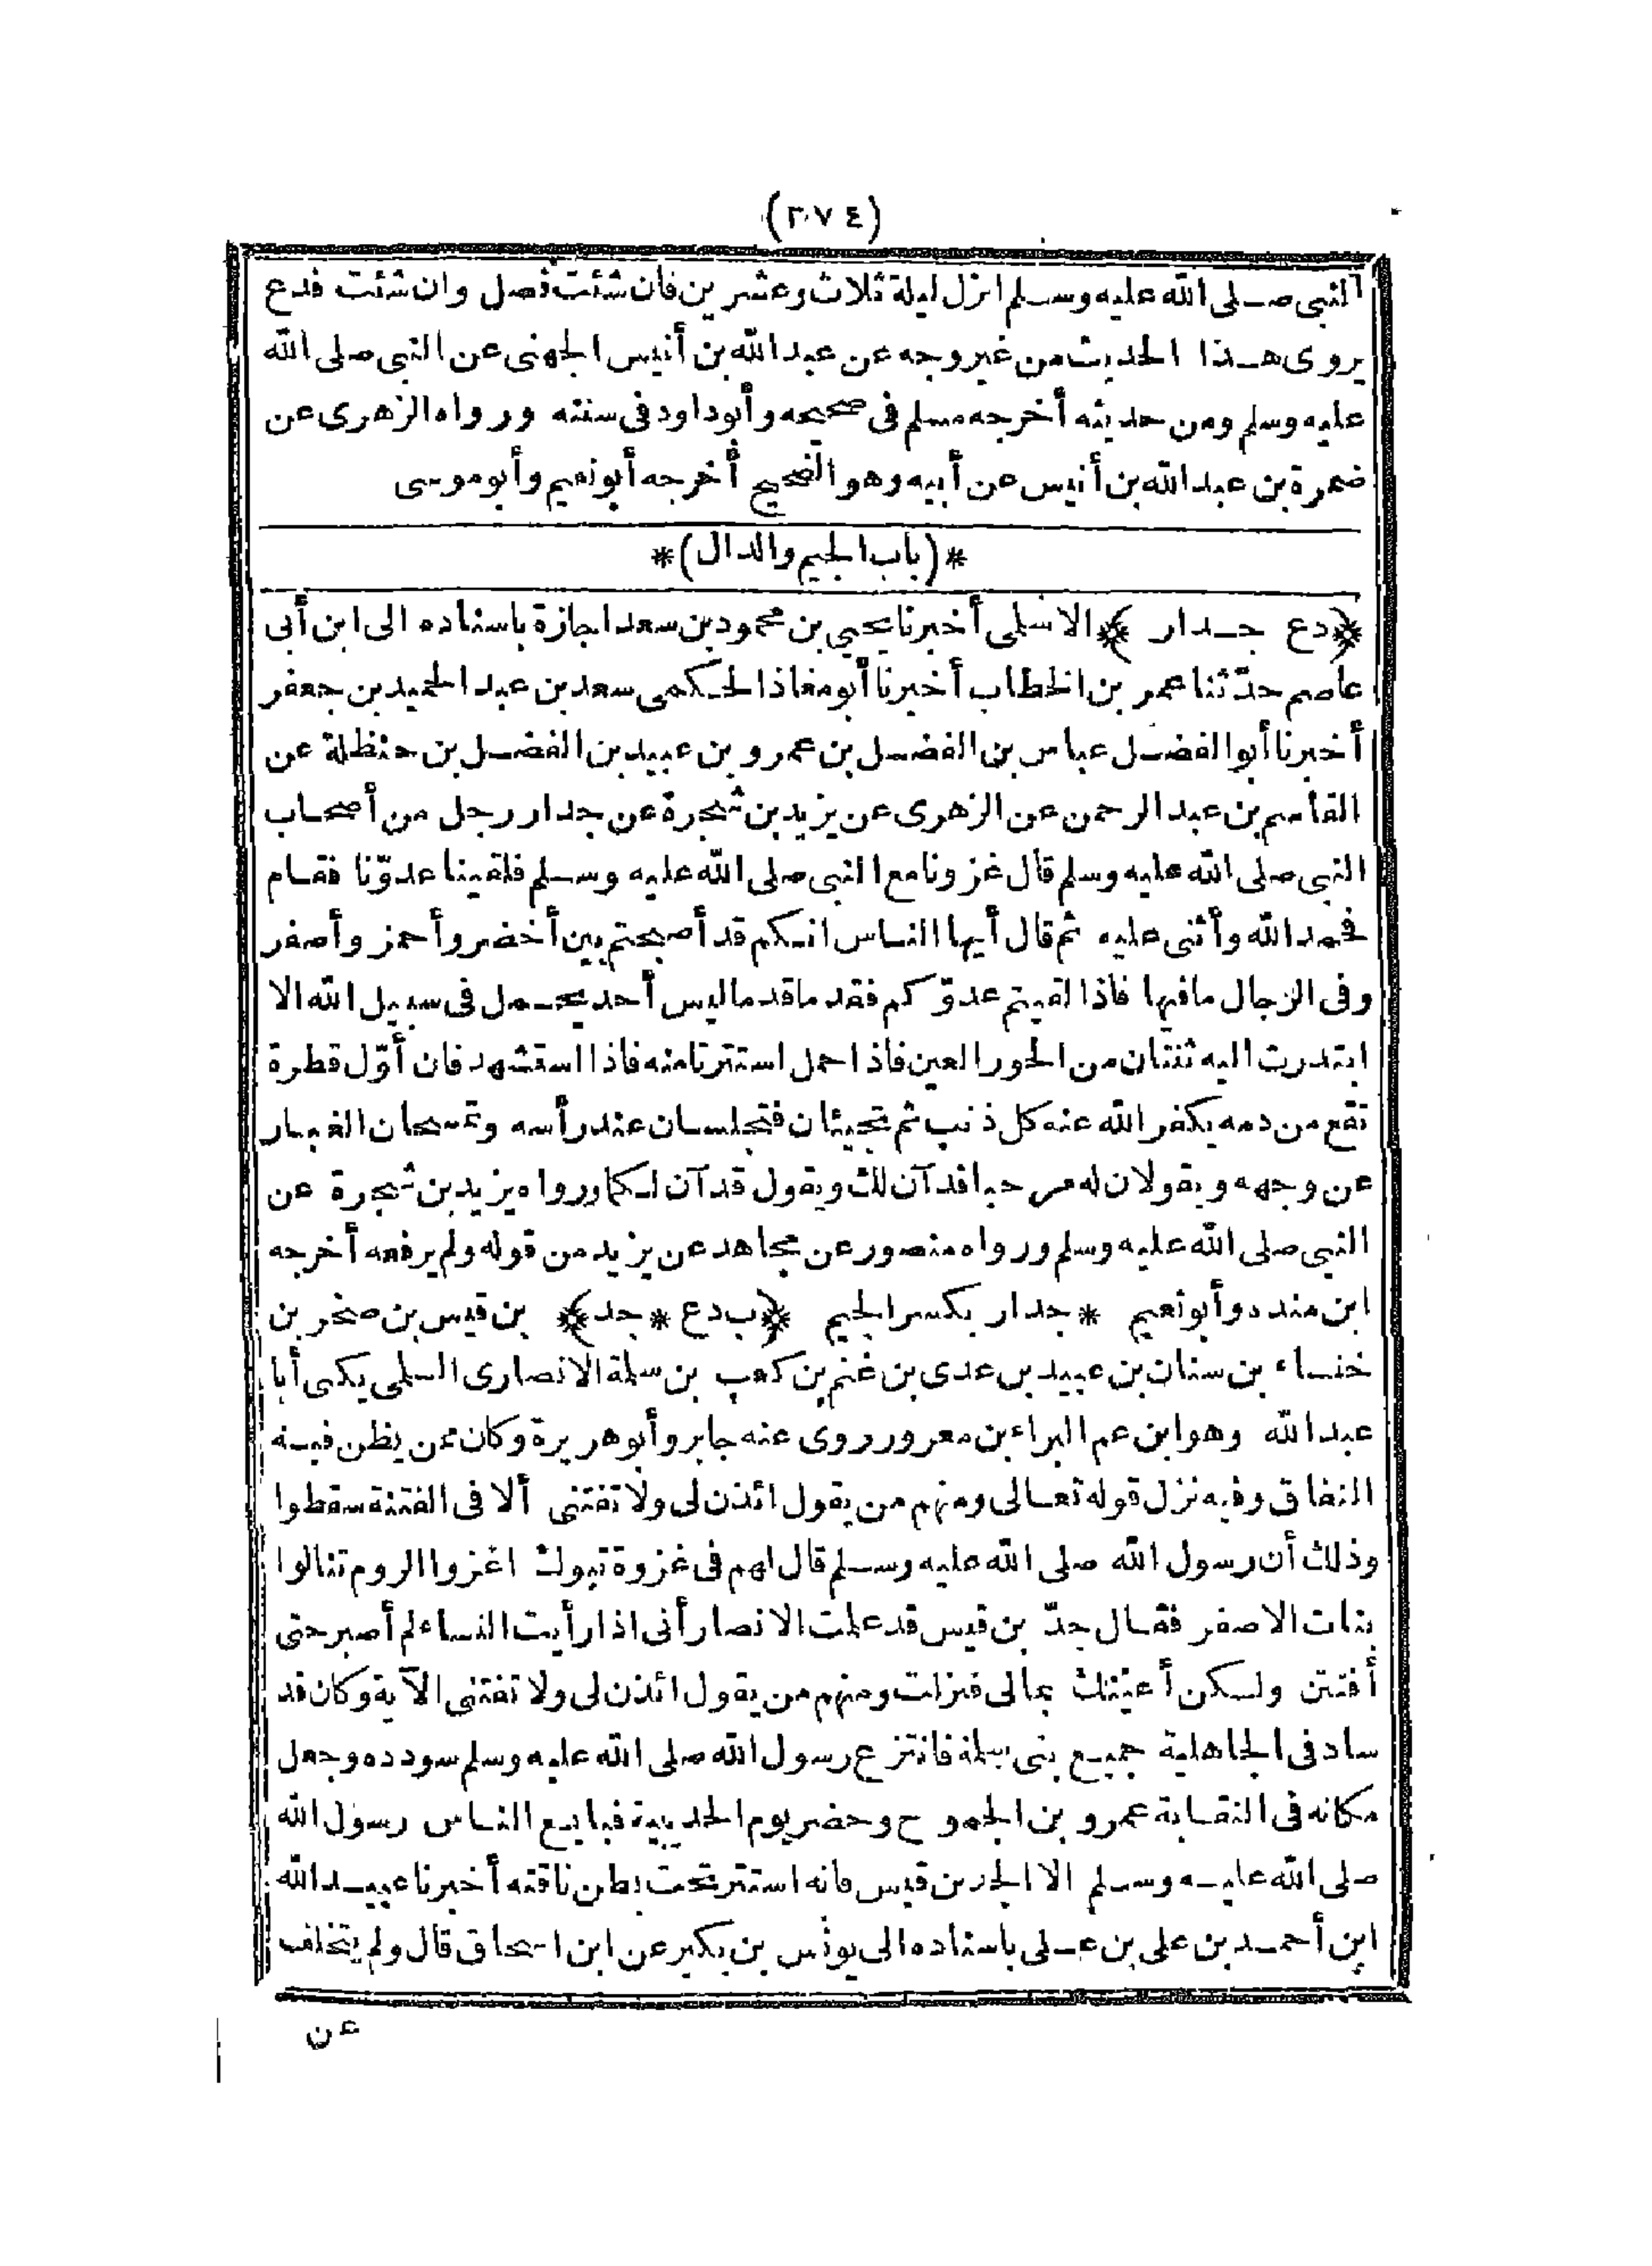 (٢٧٤)
النبى صلى الله عليه وسلم انزل ليلة ثلاث وعشرين فان شئت فصل وان شئت فدع
يروى هذا الحديث من غير وجه عن عبد الله بن أنيس الجهنى عن النبى صلى الله
عليه وسلم ومن حديثه أخرجه مسلم فى صحيحه وأبو داود فى سننه ورواه الزهرى عن
ضمرة بن عبد الله بن أنيس عن أبيه وهو الصحيح أخرجه أبو نعيم وأبو موسى
*(باب الجيم والدال)*
﴿دع جدار﴾ الاسلمى أخبرنا يحيى بن محمود بن سعد اجازة باسناده الى ابن أبى
عاصم حدّثنا عمر بن الخطاب أخبرنا أبو معاذ الحكمى سعد بن عبد الحميد بن جعفر
أخبرنا أبو الفضل عباس بن الفضل بن عمرو بن عبيد بن الفضل بن حنظلة عن
القاسم بن عبد الرحمن عن الزهرى عن يزيد بن شجرة عن جدار رجل من أصحاب
النبى صلى الله عليه وسلم قال غزونا مع النبى صلى الله عليه وسلم فلقينا عدوّنا فقام
فحمد الله وأثنى عليه ثم قال أيها الناس انكم قد أصبحتم بين أخضر وأحمر وأصفر
وفى الرجال ما فيها فاذا لقيتم عدوّكم فقدما قدما ليس أحد يحمل فى سبيل الله الا
ابتدرت اليه ثنتان من الحور العين فاذا حمل استترتا منه فاذا استشهد فان أوّل قطرة
تقع من دمه يكفر الله عنه كل ذنب ثم تجيئان فتجلسان عند رأسه وتمسحان الغبار
عن وجهه ويقولان له مرحبا قد آن لك ويقول قد آن لكما ورواه يزيد بن شجرة عن
النبى صلى الله عليه وسلم ورواه منصور عن مجاهد عن يزيد من قوله ولم يرفعه أخرجه
ابن منده وأبو نعيم * جدار بكسر الجيم ﴿ب دع * جد﴾ بن قيس بن صخر بن
خنساء بن سنان بن عبيد بن عدى بن غنم بن كعب بن سلمة الانصارى السلمى يكنى أبا
عبد الله وهو ابن عم البراء بن معرور روى عنه جابر وأبو هريرة وكان ممن يظن فيه
النفاق وفيه نزل قوله تعالى ومنهم من يقول ائذن لى ولا تفتنى ألا فى الفتنة سقطوا
وذلك أن رسول الله صلى الله عليه وسلم قال لهم فى غزوة تبوك اغزوا الروم تنالوا
بنات الاصفر فقال جدّ بن قيس قد علمت الانصار أنى اذا رأيت النساء لم أصبر حتى
أفتتن ولكن أعينك بمالى فنزلت ومنهم من يقول ائذن لى ولا تفتنى الآية وكان قد
ساد فى الجاهلية جميع بنى سلمة فانتزع رسول الله صلى الله عليه وسلم سودده وجعل
مكانه فى النقابة عمرو بن الجموح وحضر يوم الحديبية فبايع الناس رسول الله
صلى الله عليه وسلم الا الجد بن قيس فانه استتر تحت بطن ناقته أخبرنا عبيد الله
ابن أحمد بن على بن على باسناده الى يونس بن بكير عن ابن اسحاق قال ولم يتخلف
عن